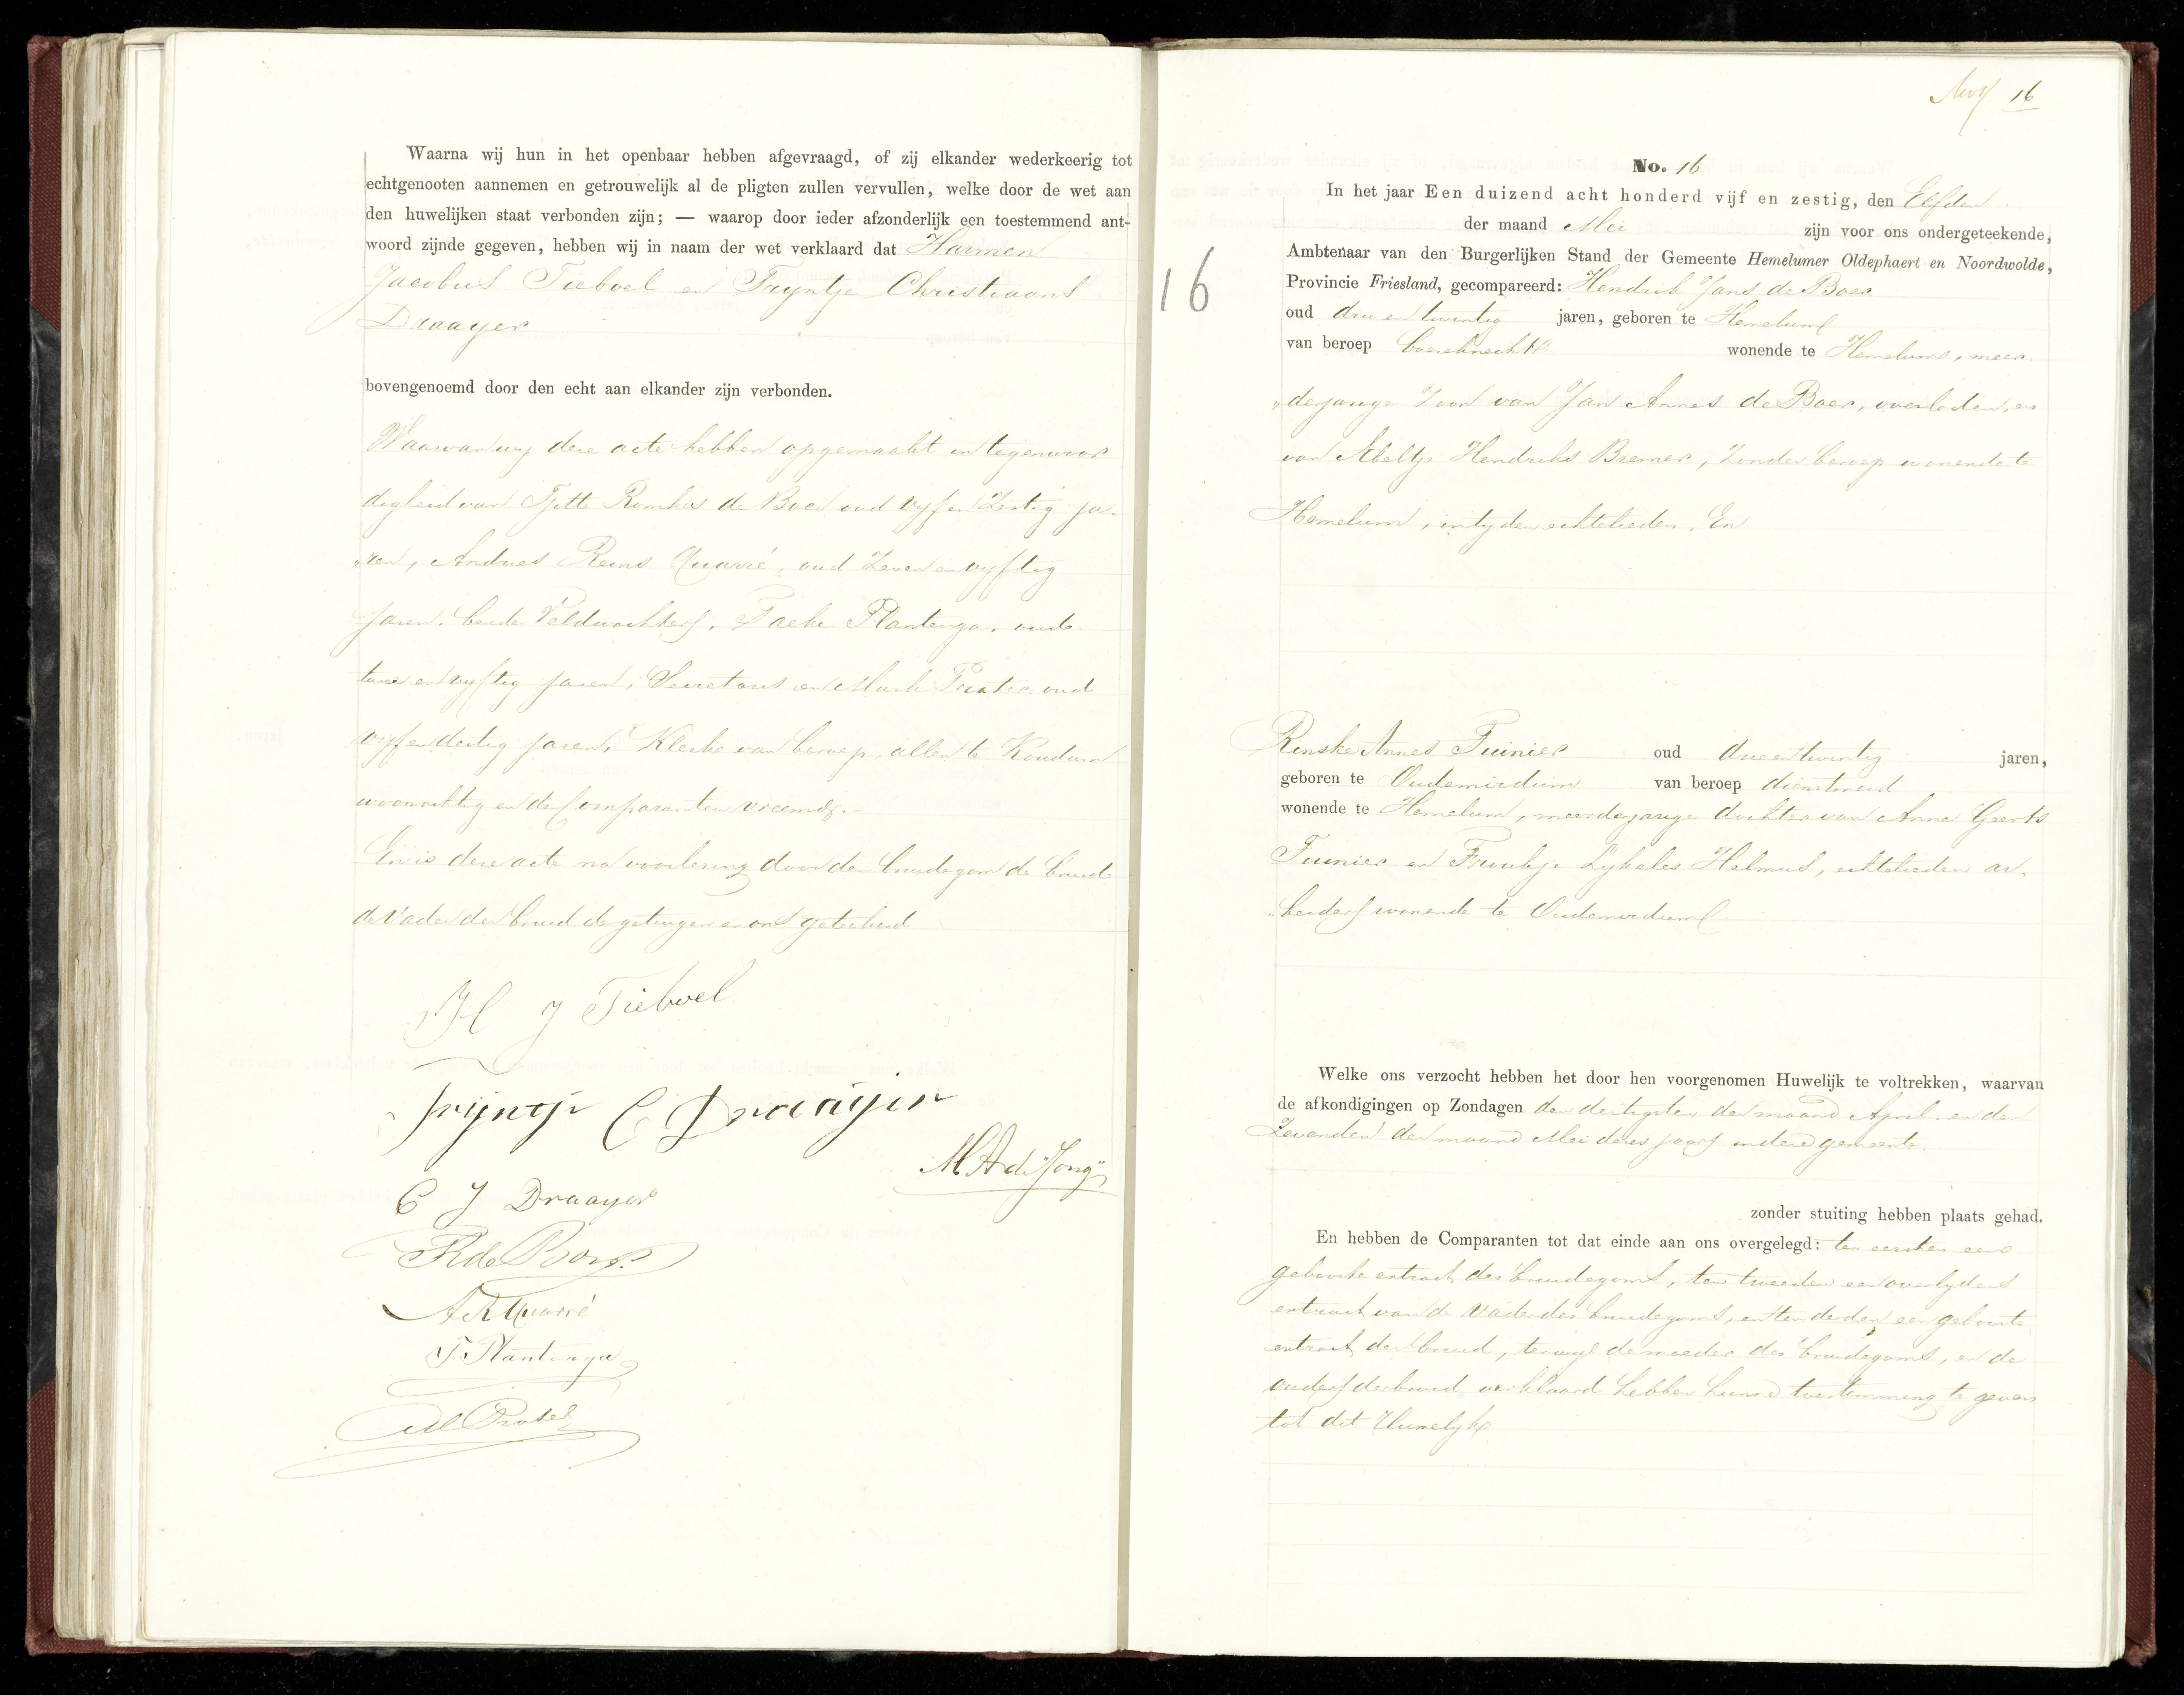 Waarna wij hun in het openbaar hebben afgevraagd, of zij elkander wederkeerig tot
echtgenooten aannemen en getrouwelijk al de pligten zullen vervullen, welke door de wet aan
den huwelijken staat verbonden zijn; — waarop door ieder afzonderlijk een toestemmend ant-
woord zijnde gegeven, hebben wij in naam der wet verklaard dat Harmen
Jacobus Tieboel en Tryntje Christiaans
Draayer
bovengenoemd door den echt aan elkander zijn verbonden.
Waarvan wy deze acte hebben opgemaakt in tegenwoor
digheid van Tjitte Romkes de Boer oud vyf en Zestig ja-
"ren, Andries Reins Quarré, oud Zeven en vyftig
jaren, beide Veldwachters, Tacke Plantenga, oud
twee en vyftig jaren, Secretaris en Mark Prater oud
vyf en dertig jaren, Klerke van beroep, allen te Koudum
woonachtig en de Comparanten vreemd.-
En is deze acte na voorlezing door den bruidegom de bruid
de Vader der bruid de getuigen en ons geteekend
H J Tieboel
Trijntje C Draaijer
M A de Jong
C J Draayer
T R de Boer
A R Quarré
T Plantenga
M Prater
16
16
No. 16
In het jaar Een duizend acht honderd vijf en zestig, den Elfden
der maand Mei zijn voor ons ondergeteekende,
Ambtenaar van den Burgerlijken Stand der Gemeente Hemelumer Oldephaert en Noordwolde,
Provincie Friesland, gecompareerd: Hendrik Jans de Boer
oud drie en twintig jaren, geboren te Hemelum
van beroep boereknecht wonende te Hemelum, meer
"derjarige Zoon van Jan Annes de Boer, overleden, en
van Abeltje Hendriks Bremer, Zonder beroep wonende te
Hemelum, in tyden echtelieden. En
Renske Annes Tuinier oud drie en twintig jaren,
geboren te Oudemirdum van beroep dienstmeid
wonende te Hemelum, meerderjarige dochter van Anne Geerts
Tuinier en Froukje Lykeles Helmus, echtelieden ar-
"beiders wonende te Oudemirdum
Welke ons verzocht hebben het door hen voorgenomen Huwelijk te voltrekken, waarvan
de afkondigingen op Zondagen den dertigsten der maand April en den
Zevenden der maand Mei dezes jaars in deze gemeente
zonder stuiting hebben plaats gehad.
En hebben de Comparanten tot dat einde aan ons overgelegd: ten eersten een
geboorte extract des bruidegoms, ten tweeden een overlydens
extract van de Vader des bruidegoms, en ten derden een geboorte
extract der bruid, terwyl de moeder des bruidegoms, en de
ouders der bruid verklaard hebben hunne toestemming te geven
tot dit Huwelyk